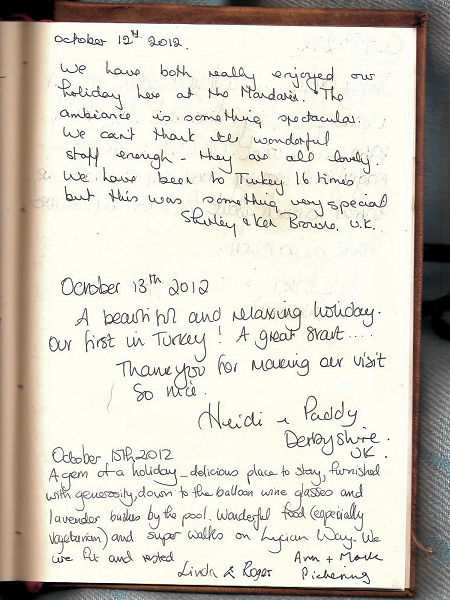 October 12th 2012.
We have both really enjoyed our
holiday here at the Mandarin. The
ambiance is something spectacular.
We can't thank the wonderful
staff enough - they are all lovely.
We have been to Turkey 16 times
but this was something very special
Shirley & Ken Browne. U.K.
October 13th 2012
A beautiful and relaxing holiday.
Our first in Turkey! A great start....
Thankyou for making our visit
so nice.
Heidi & Paddy
Derbyshire.
UK.
October 15th 2012
A gem of a holiday - delicious place to stay, furnished
with generosity, down to the balloon wine glasses and
lavender bushes by the pool. Wonderful food (especially
vegetarian) and super walks on Lycian Way. We
are fit and rested
Linda & Roger
Ann + Mark
Pickering